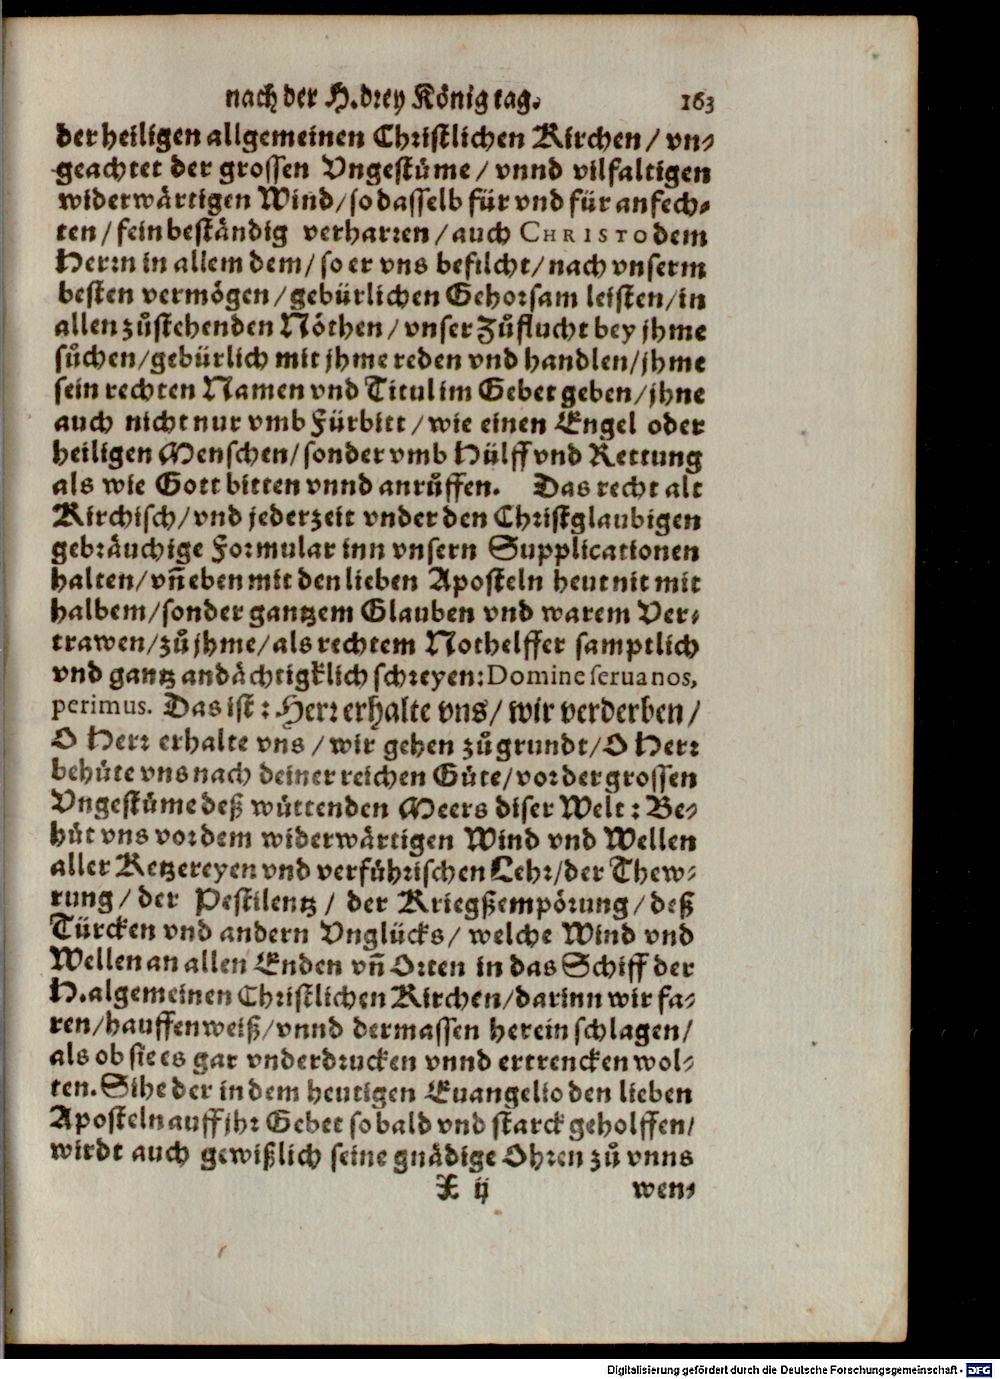 nach der H. drey König tag. 163
der heiligen allgemeinen Christlichen Kirchen / vn⸗
geachtet der grossen Vngestüme / vnnd vilfaltigen
widerwärtigen Wind / so dasselb für vnd für anfech⸗
ten / fein beständig verharren / auch CHRISTO dem
Herrn in allem dem / so er vns befilcht / nach vnserm
besten vermögen / gebürlichen Gehorsam leisten / in
allen zůstehenden Nöthen / vnser Zůflucht bey jhme
sůchen / gebürlich mit jhme reden vnd handlen / jhme
sein rechten Namen vnd Titul im Gebet geben / jhne
auch nicht nur vmb Fürbitt / wie einen Engel oder
heiligen Menschen / sonder vmb Hülff vnd Rettung
als wie Gott bitten vnnd anrůffen. Das recht alt
Kirchisch / vnd jederzeit vnder den Christglaubigen
gebräuchige Formular inn vnsern Supplicationen
halten / vñ eben mit den lieben Aposteln heut nit mit
halbem / sonder gantzem Glauben vnd warem Ver⸗
trawen / zů jhme / als rechtem Nothelffer samptlich
vnd gantz andächtigklich schreyen: Domine serua nos,
perimus. Das ist: Herr erhalte vns / wir verderben /
O Herr erhalte vns / wir gehen zů grundt / O Herr
behüte vns nach deiner reichen Güte / vor der grossen
Vngestüme deß wüttenden Meers diser Welt: Be⸗
hüt vns vor dem widerwärtigen Wind vnd Wellen
aller Ketzereyen vnd verführischen Lehr / der Thew⸗
rung / der Pestilentz / der Kriegßempörung / deß
Türcken vnd andern Vnglücks / welche Wind vnd
Wellen an allen Enden vñ Orten in das Schiff der
H. algemeinen Christlichen Kirchen / darinn wir fa⸗
ren / hauffenweiß / vnnd dermassen herein schlagen /
als ob sie es gar vnderdrucken vnnd ertrencken wol⸗
ten. Sihe der in dem heutigen Euangelio den lieben
Aposteln auff jhr Gebet so bald vnd starck geholffen /
wirdt auch gewißlich seine gnädige Ohren zů vnns
X ij wen⸗
Digitalisierung gefördert durch die Deutsche Forschungsgemeinschaft - DFG